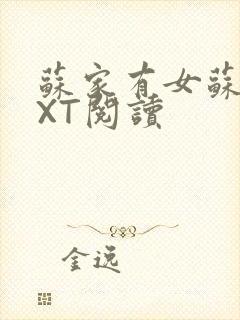 蘇家有女蘇
XT閱讀
金逸